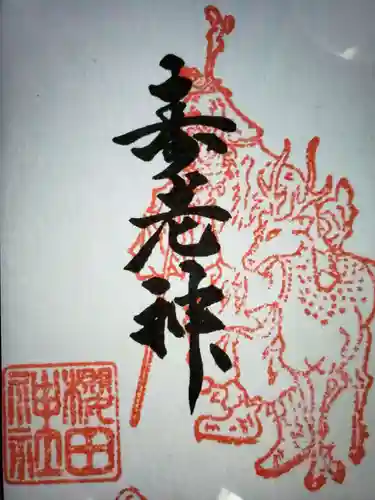 寿老神
櫻田
神社